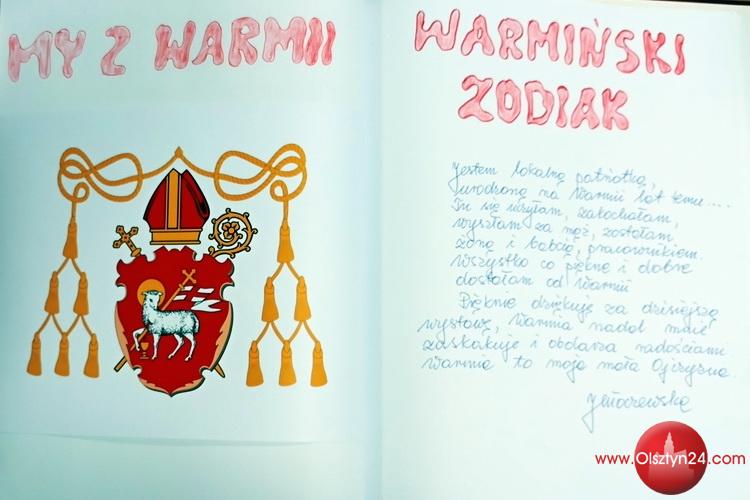 MY Z WARMII
WARMIŃSKI
ZODIAK
Jestem lokalną patriotką,
urodzoną na Warmii lat temu....
Tu się uczyłam, zakochałam,
wyszłam za mąż, zostałam
żoną i babcią, pracownikiem.
Wszystko co piękne i dobre
dostałam od Warmii
Pięknie dziękuję za dzisiejszą
wystawę, Warmia nadal mnie
zaskakuje i obdarza radościami.
Warmia to moja mała Ojczyzna.
www.Olsztyn24.com